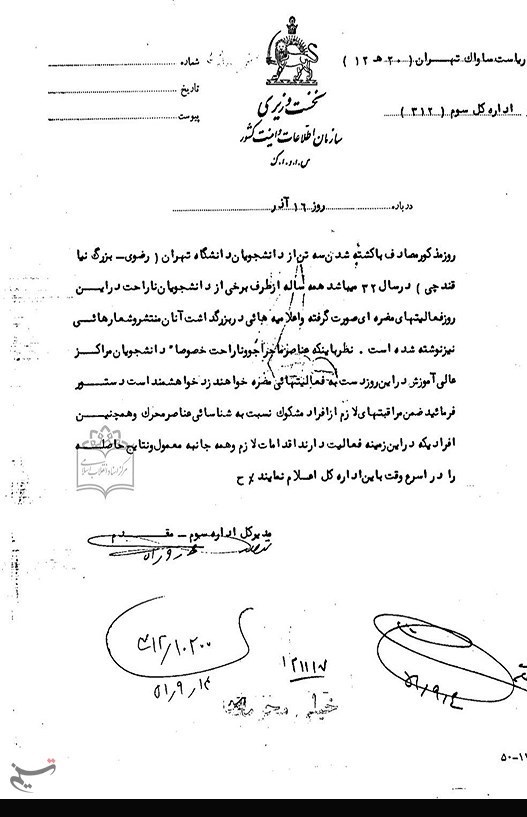 ریاست ساواک تهـــران ( ۲۰ هـ ۱۲ )
شماره
اداره کل سوم ( ۳۱۲ )
تاریخ
پیوست
نخست وزیری
سازمان اطلاعات و امنیت کشور
س.ا.و.ا.ک
درباره روز ۱۶ آذر
روز مذکور مصادف با کشته شدن سه تن از دانشجویان دانشگاه تهران ( رضوی – بزرگ نیا
قند چی ) در سال ۳۲ میباشد همه ساله از طرف برخی از دانشجویان ناراحت در این
روز فعالیتهای مضره ای صورت گرفته و اعلامیه هائی در بزرگداشت آنان منتشر و شعارهائی
نیز نوشته شده است . نظر باینکه عناصر ماجراجو و ناراحت خصوصا" دانشجویان مراکز
عالی آموزش در این روز دست به فعالیتهائی مضره خواهند زد خواهشمند است دستـــور
فرمائید ضمن مراقبتهای لازم از افراد مشکوک نسبت به شناسائی عناصر محرک و همچنیـــن
افرادیکه در این زمینه فعالیت دارند اقدامات لازم و همه جانبه معمول و نتایج حاصلـــه
را در اسرع وقت باین اداره کل اعـلام نمایند ٪ ح
مرکز اسناد انقلاب اسلامی
مدیر کل اداره سوم – مقـــدم
۱۲/۱۰۲۰۰
۵۱/۹/۱۴
خیلی محرمانه
تسنیم